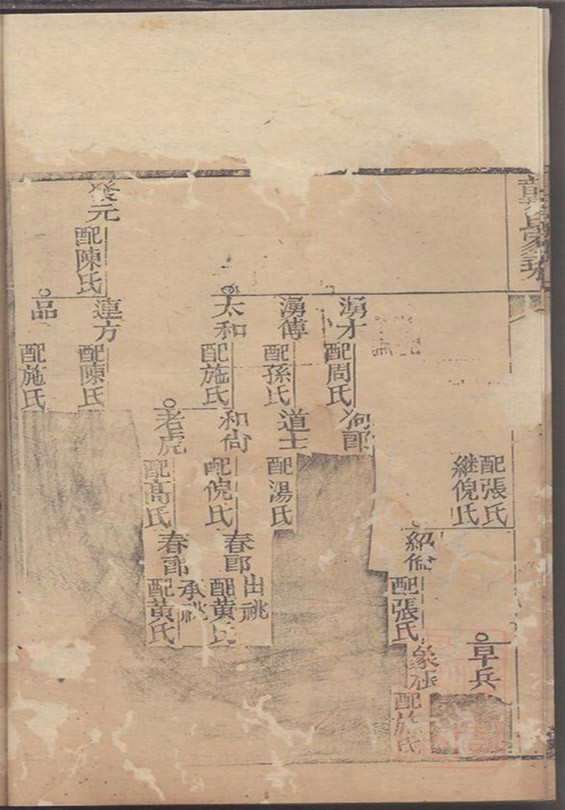 氏家
配張氏
継倪氏
早兵
紹
配張氏
配施氏
湧才
配周氏
湧傳
配孫氏
道士
配湯氏
太和
配施氏
和尚
配倪氏
春郎
出祧
配黃氏
老虎
配高氏
春郎
承祧
配黃氏
發元
配陳氏
蓮方
配陳氏
品
配施氏